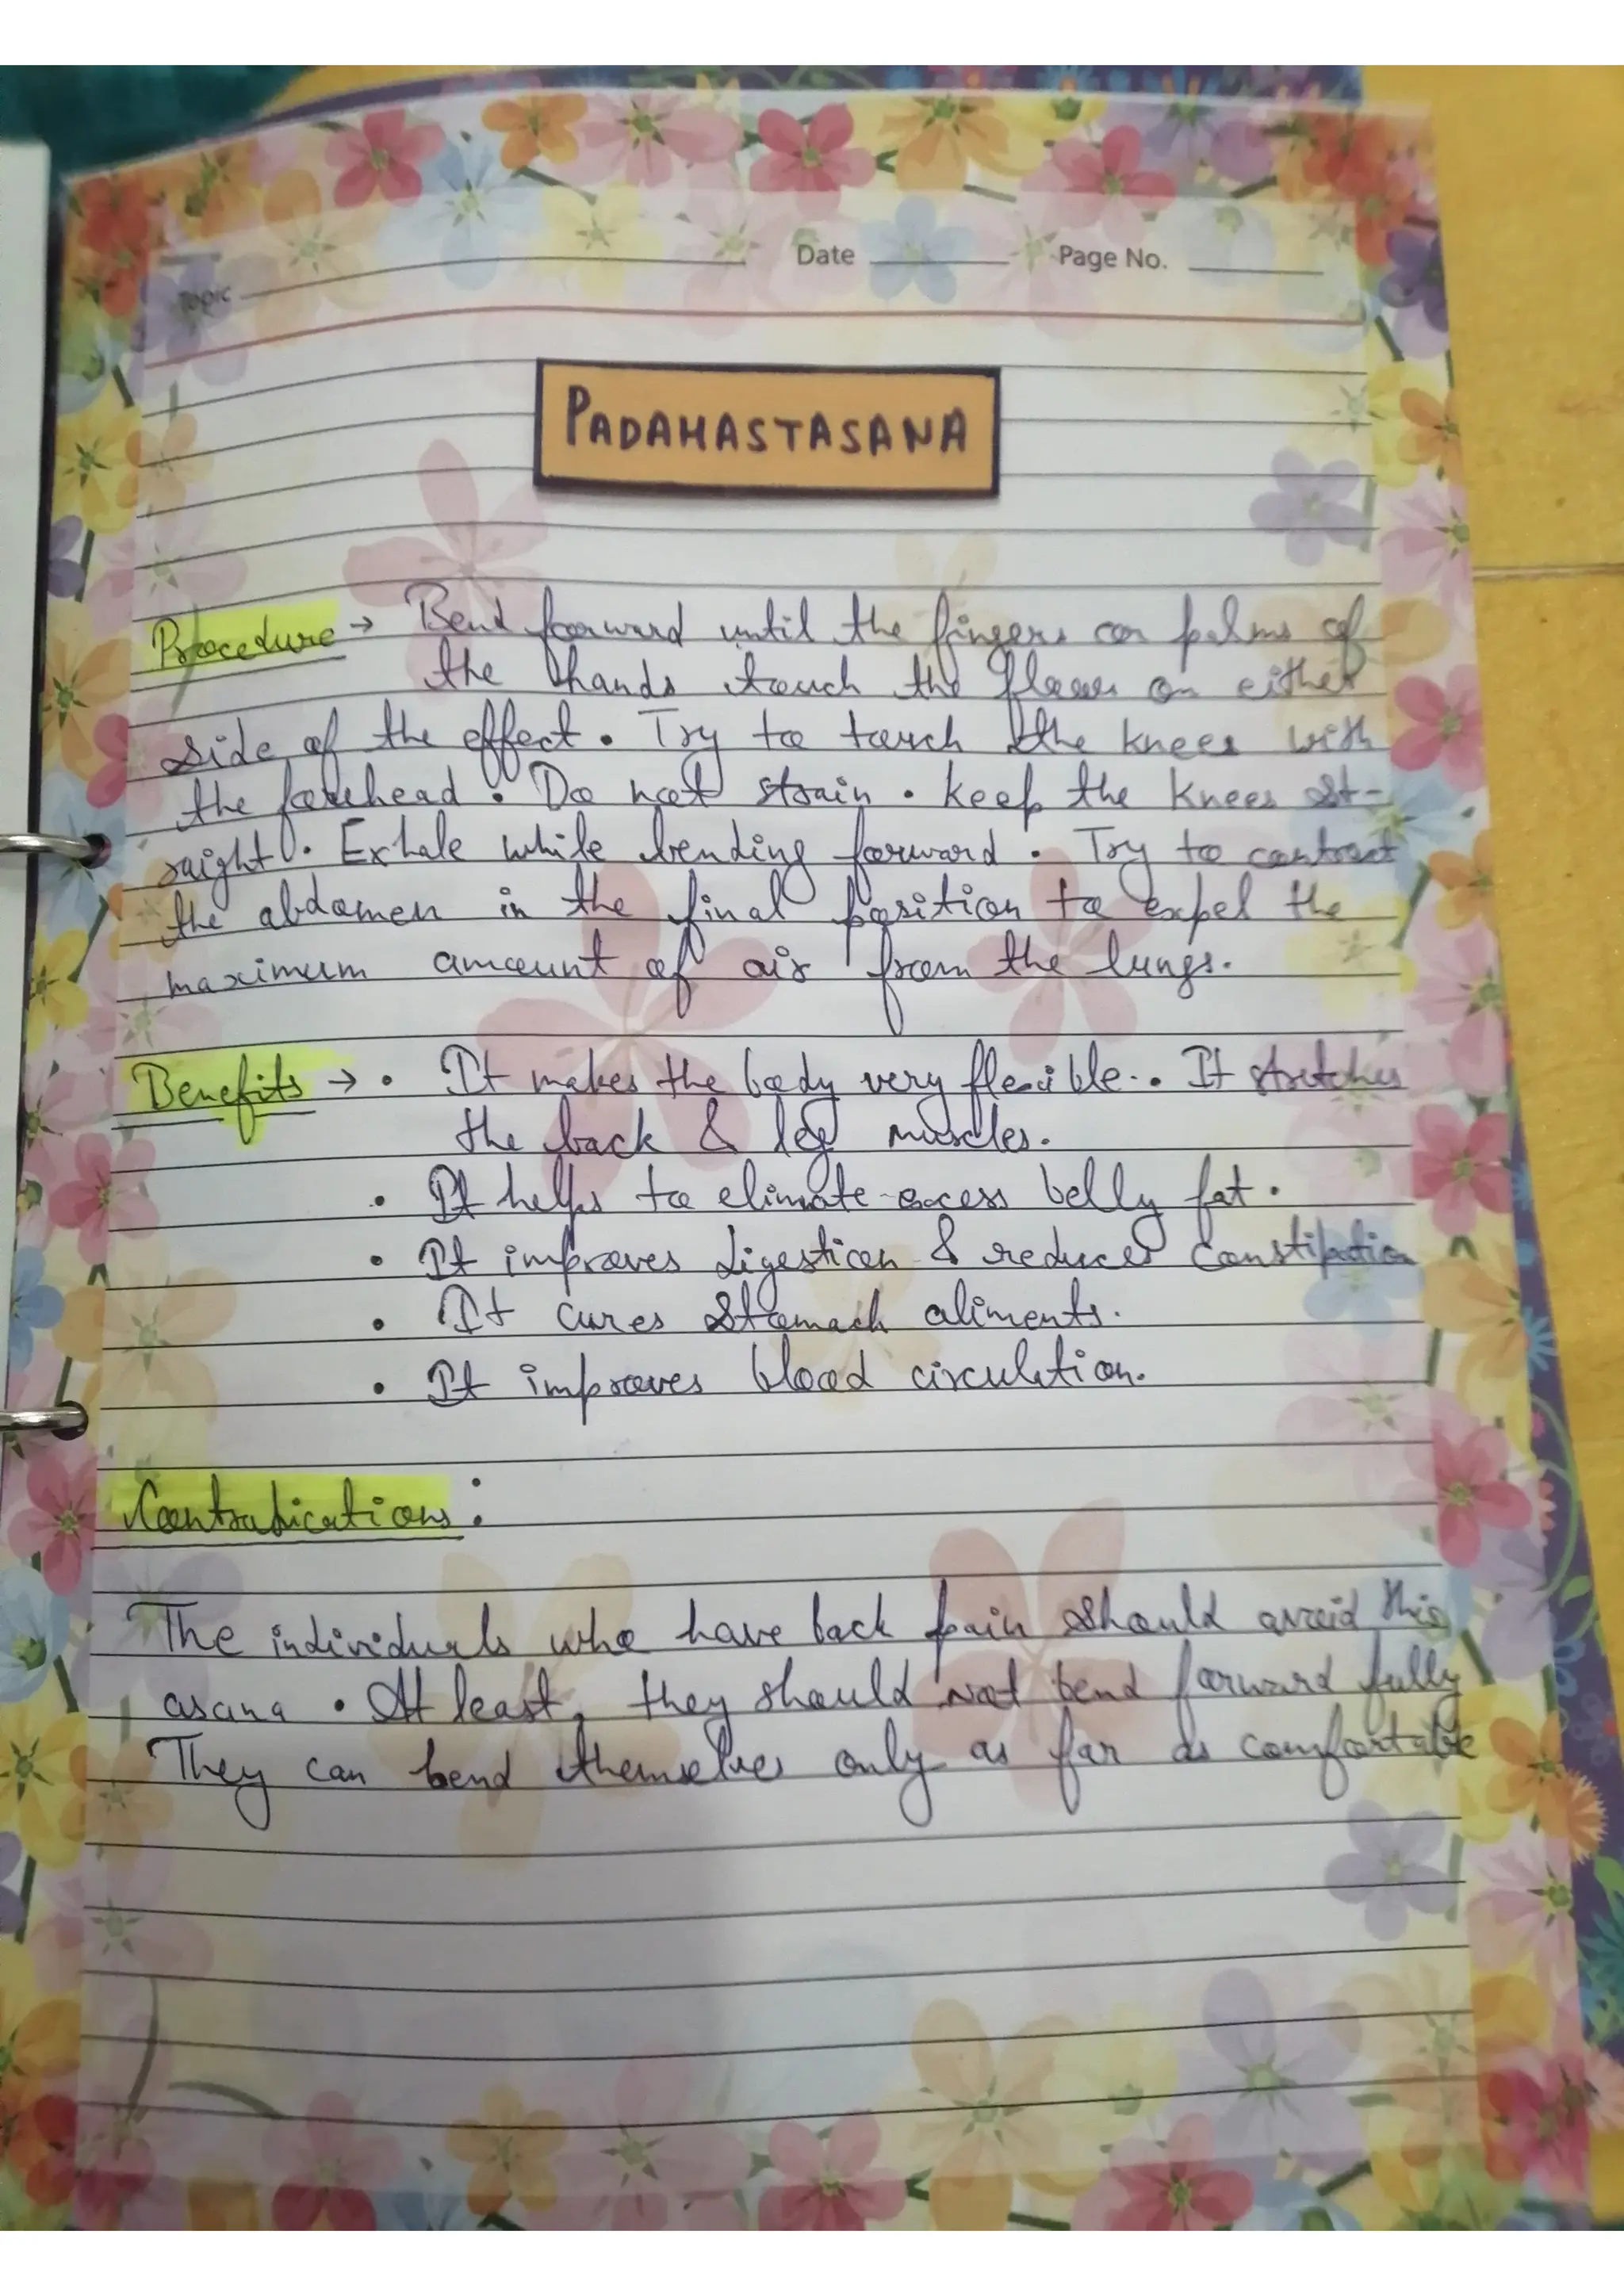 Topic
Date Page No.
PADAHASTASANA
Procedure → Bend forward until the fingers or palms of
the hands touch the floor on either
side of the effect. Try to touch the knees with
the forehead. Do not strain. keep the knees st-
raight. Exhale while bending forward. Try to contract
the abdomen in the final position to expel the
maximum amount of air from the lungs.
Benefits → • It makes the body very flexible. • It stretches
the back & leg muscles.
• It helps to elimate excess belly fat.
• It improves digestion & reduces constipation
• It cures stomach aliments.
• It improves blood circulation.
Contradications :
The individuals who have back pain should avoid this
asana. At least, they should not bend forward fully
They can bend themselves only as far as comfortable